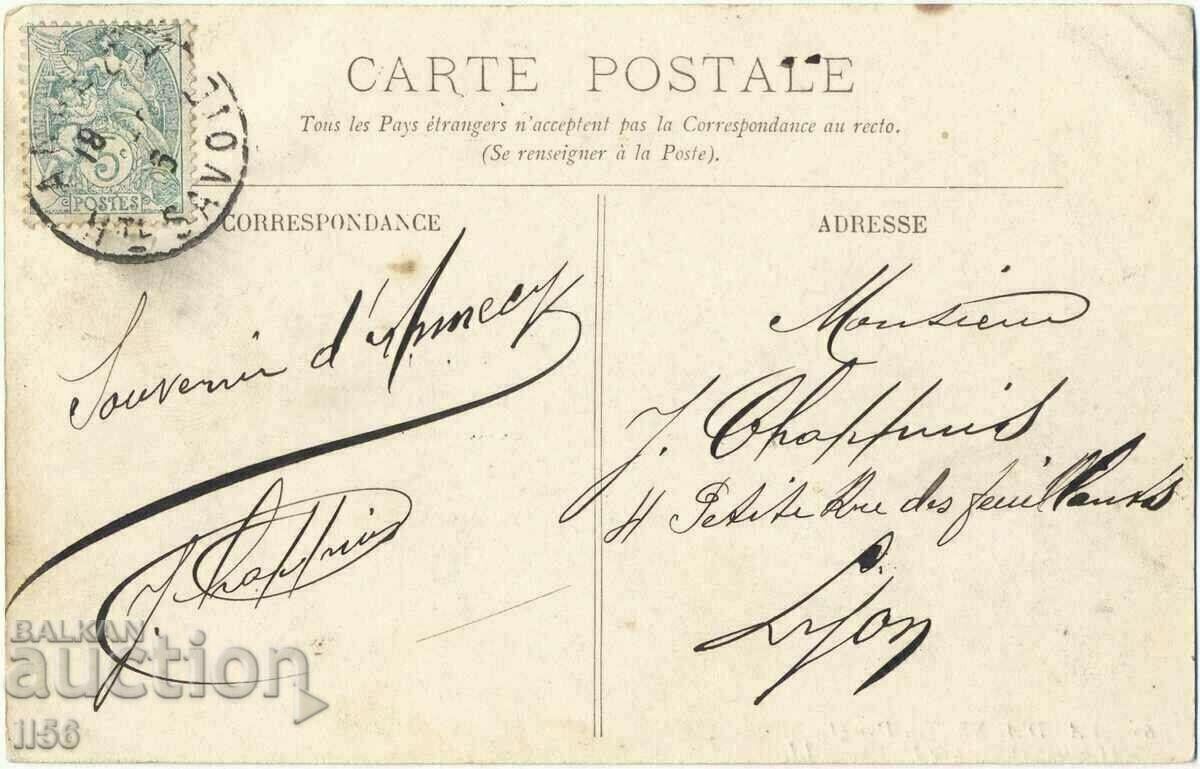 CARTE POSTALE
Tous les Pays étrangers n'acceptent pas la Correspondance au recto.
(Se renseigner à la Poste).
5c
POSTES
ANNECY
Hte SAVOIE
18
CORRESPONDANCE
Souvenir d'Annecy
J. Chappuis
ADRESSE
Monsieur
J. Chappuis
4 Petite Rue des feuillants
Lyon
BALKAN
auction
1156